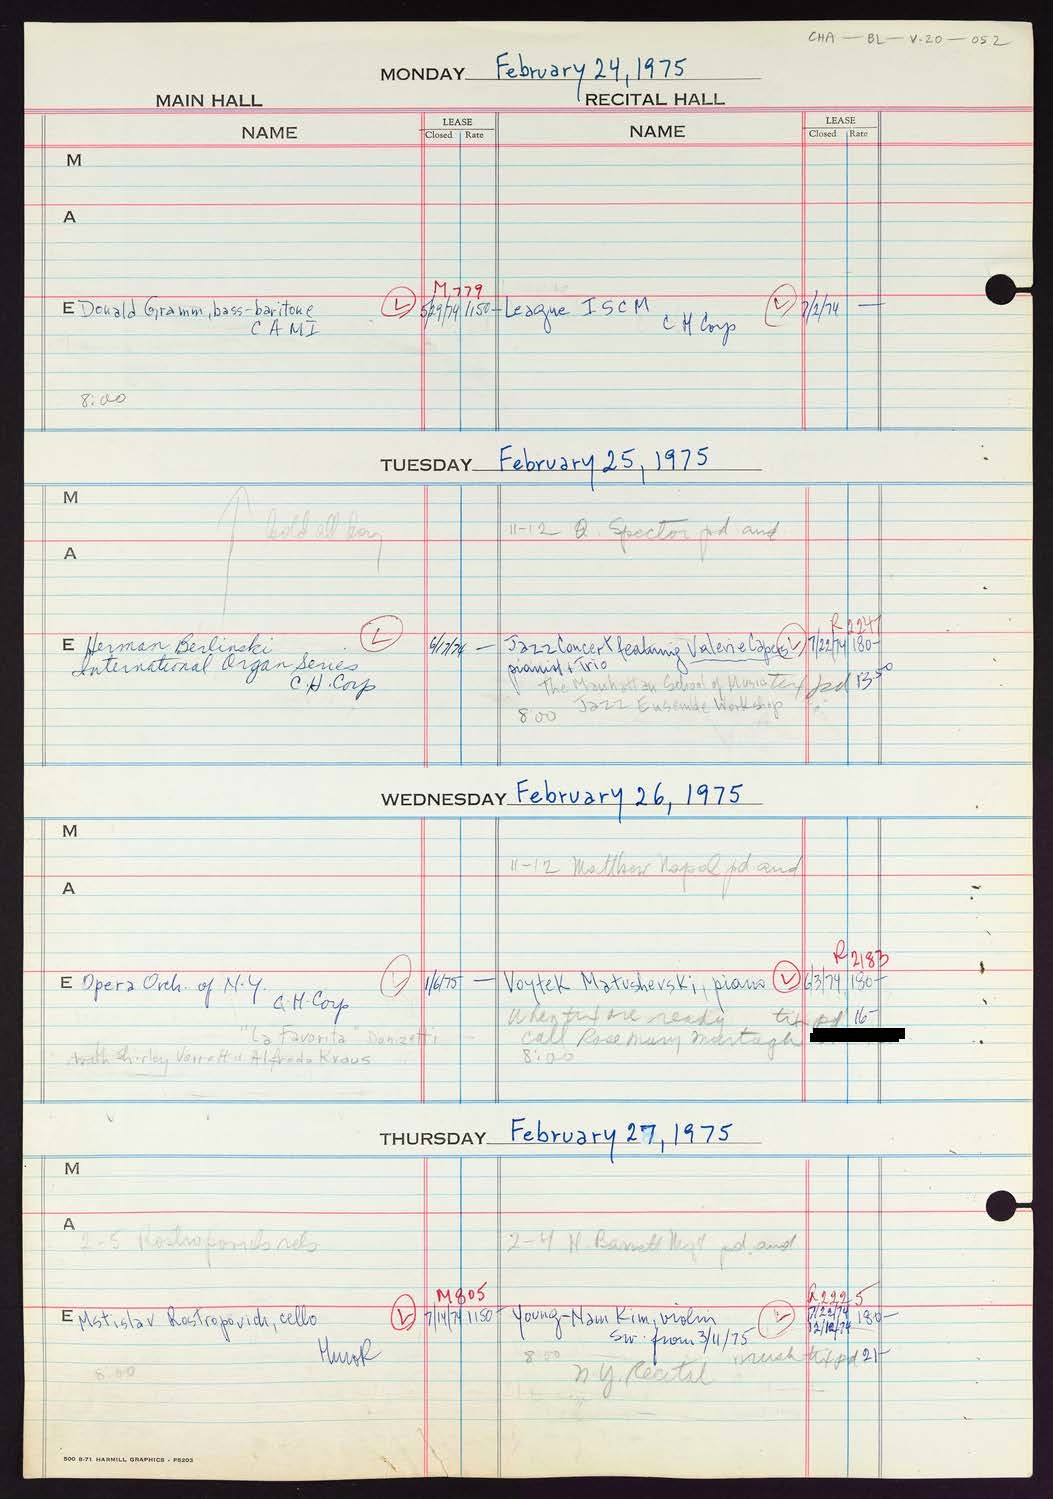 CHA — BL — V-20 — 052
MONDAY February 24, 1975
MAIN HALL RECITAL HALL
NAME LEASE Closed Rate NAME LEASE Closed Rate
M
A
M 779
E Donald Gramm, bass-baritone L 5/29/74 1150- League ISCM L 7/2/74 —
CAMI C H Corp
8:00
TUESDAY February 25, 1975
M
hold all day 11-12 Q. Spector pd and
A
R 2247
E Herman Berlinski L 6/17/74 — Jazz Concert featuring Valerie Capers L 7/22/74 180-
International Organ Series pianist + Trio
C.H. Corp The Manhattan School of Music tix pd 13.50
8:00 Jazz Ensemble Workshop
WEDNESDAY February 26, 1975
M
11-12 Matthew pd and
A
R 2183
E Opera Orch. of N.Y. L 1/6/75 — Voytek Matushevski, piano L 6/3/74 180-
C.H. Corp When tix are ready tix pd 16-
"La Favorita" Donizetti call Rosemary
with Shirley Verrett & Alfredo Kraus 8:00
THURSDAY February 27, 1975
M
A
2-5 Rostropovich reh 2-4 N. Barrett Mgt pd and
M 805 R 2225
E Mstislav Rostropovich, cello L 7/14/74 1150- Young-Nam Kim, violin L 7/22/74 12/12/74 180-
Hurok Sw. from 3/11/75
8:00 8:00 tix pd 21-
N.Y. Recital
500 8-71 HARMILL GRAPHICS - P5203